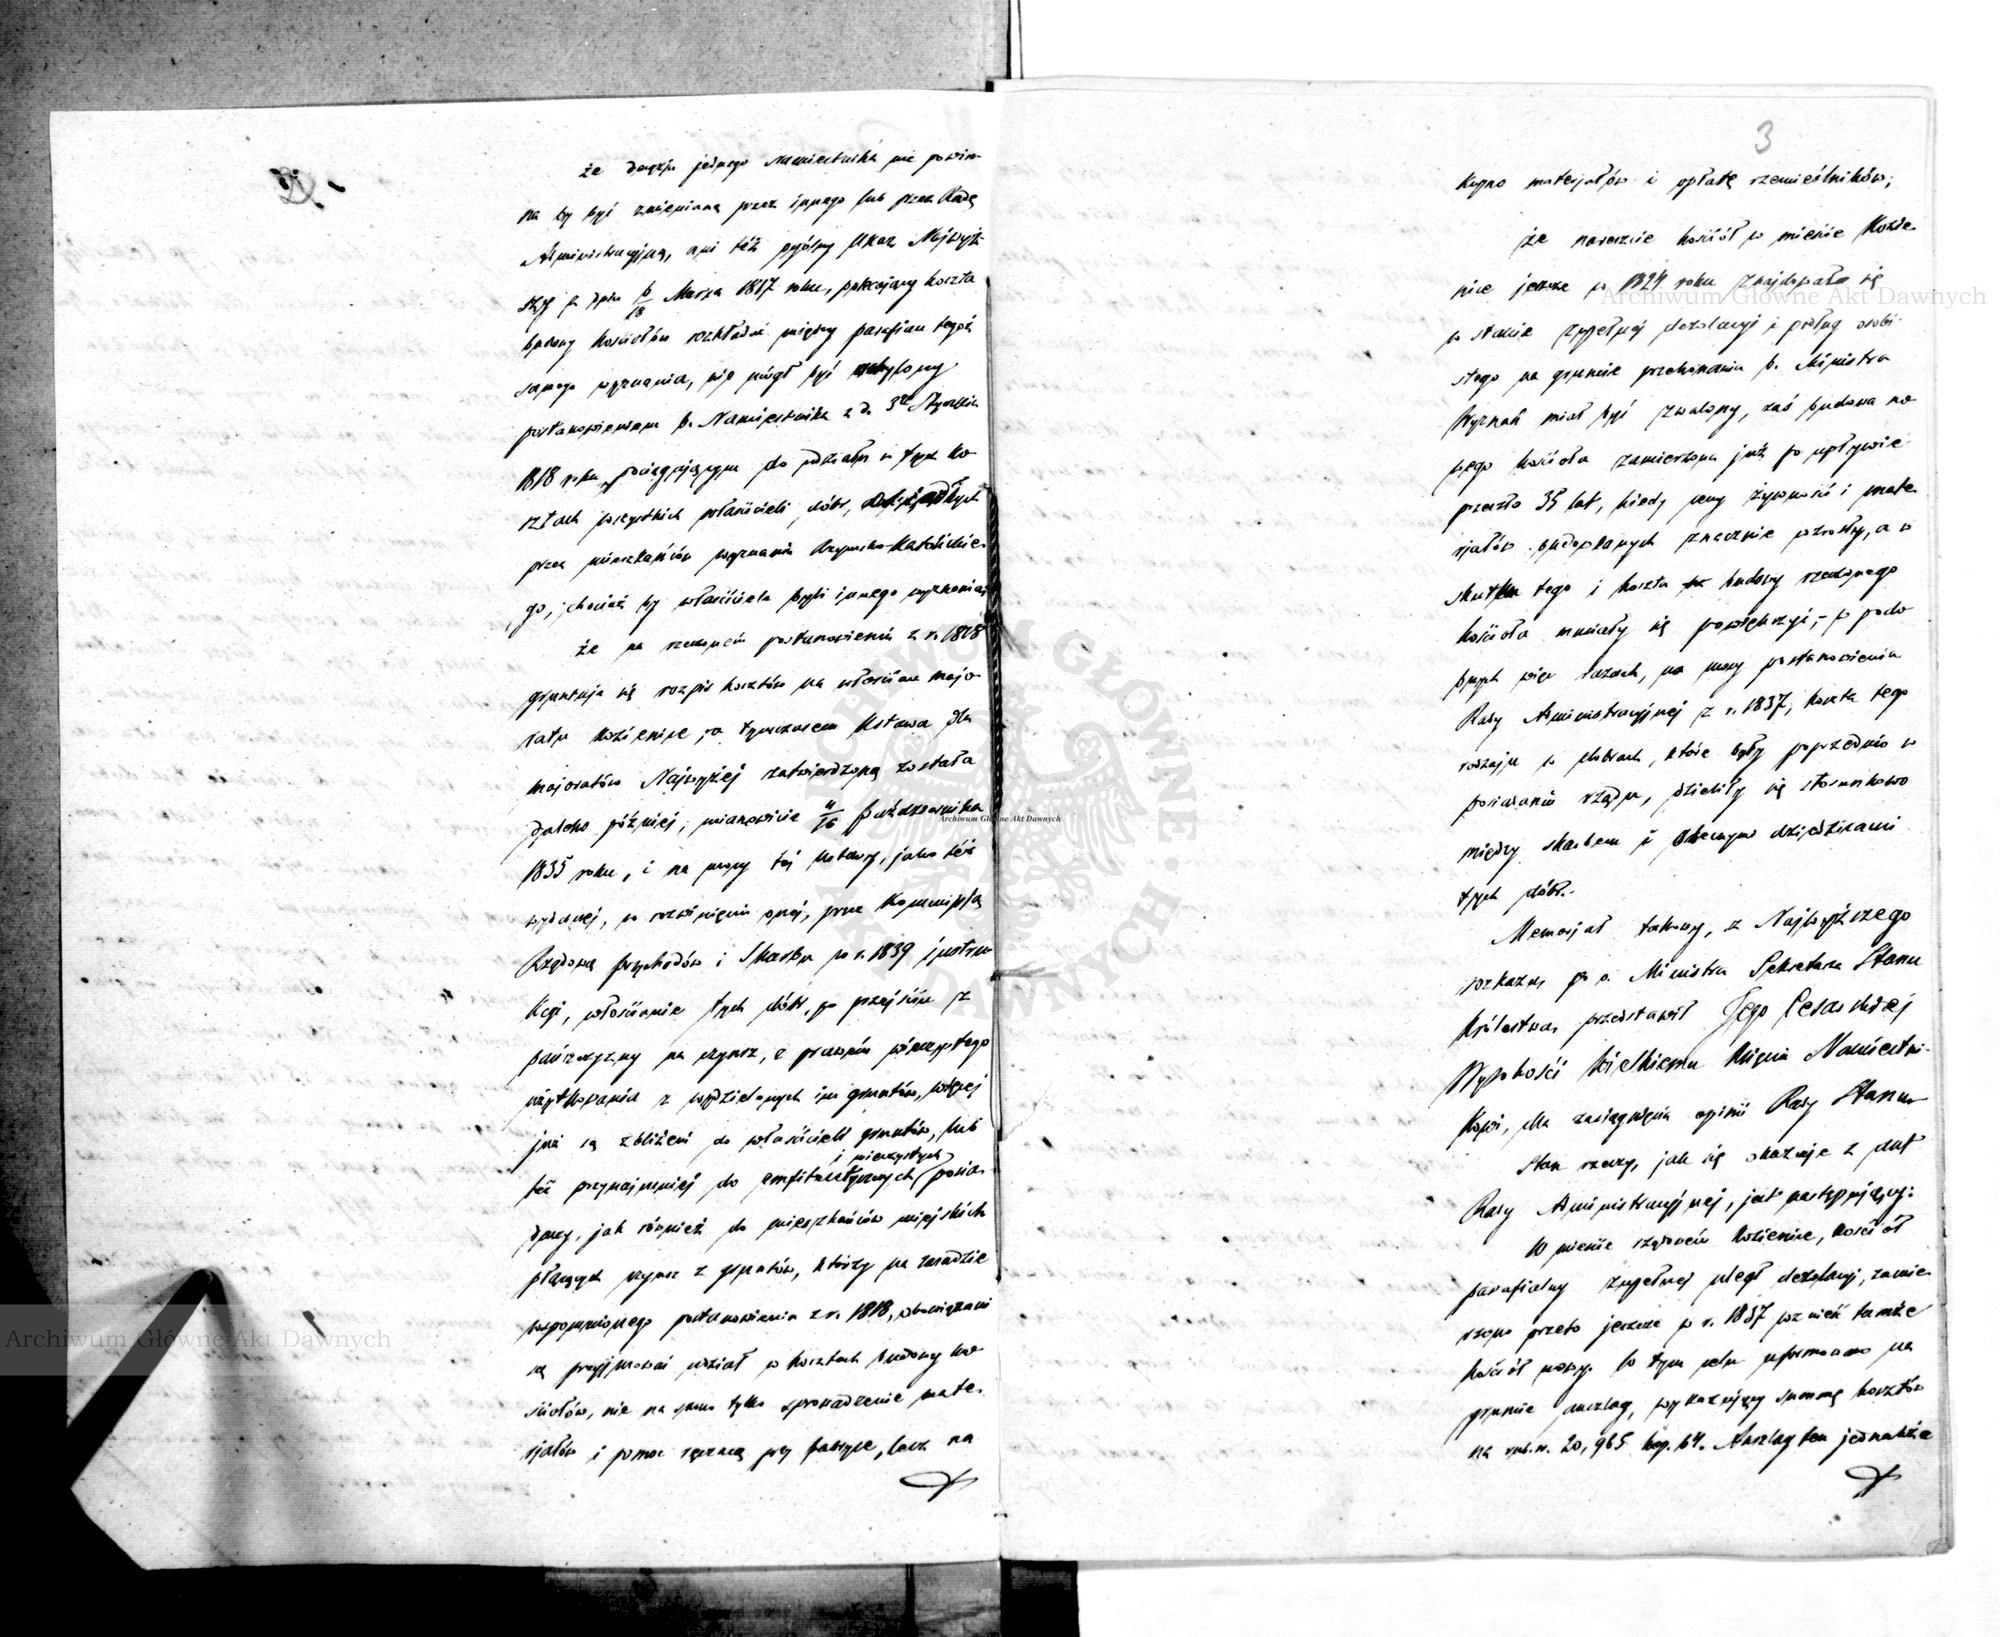 że decyzja jednego Namiestnika nie powin-
na by być zmienianą przez innego lub przez Radę
Administracyjną, ani też ogólny Ukaz Najwyż-
szy z dnia 6/18 Marca 1817 roku, polecający koszta
budowy kościołów rozkładać między parafian tegoż
samego wyznania, nie mógł być uchylony
postanowieniem b. Namiestnika z d. 3 Stycznia
1818 roku, pociągającym do udziału w tych ko-
sztach wszystkich właścicieli dóbr,
przez mieszkańców wyznania Rzymsko-Katolickie-
go, chociaż by właściciele byli innego wyznania;
że na rzeczonem postanowieniu z r. 1818
gruntuje się rozpis kosztów na włościan majo-
ratu Kozienice, a tymczasem Ustawa dla
majoratów Najwyżej zatwierdzoną została
daleko później, mianowicie 4/16 Października
1835 roku, i na mocy tej Ustawy, jako też
wydanej, w rozwinięciu onej, przez Kommissją
Rządową Przychodów i Skarbu w r. 1839 instruk-
kcji, włościanie tych dóbr, po przejściu z
pańszczyzny na czynsz, z prawem wieczystego
użytkowania z wydzielonych im gruntów, więcej
już są zbliżeni do właścicieli gruntów, lub
i wieczystych
też przynajmniej do emfiteutycznych posia-
daczy, jak również do mieszkańców miejskich
płacących czynsz z gruntów, którzy na zasadzie
wspomnionego postanowienia z r. 1818, obowiązani
są przyjmować udział w kosztach budowy ko-
ściołów, nie na samo tylko sprowadzenie mate-
rjałów i pomoc ręczną przy fabryce, lecz na
3
kupno materjałów i opłatę rzemieślników;
że nareszcie kościół w mieście Kozie-
nice jeszcze w 1824 roku znajdował się
w stanie zupełnej dezolacji i podług osobi-
stego na gruncie przekonania b. Ministra
Wyznań miał być zwalony, zaś budowa no-
wego kościoła zamierzona już po upływie
przeszło 35 lat, kiedy ceny żywności i mate-
rjałów budowlanych znacznie wzrosły, a w
skutku tego i koszta budowy rzeczonego
kościoła musiały się powiększyć; w podo-
bnych więc razach, na mocy postanowienia
Rady Administracyjnej z r. 1837, koszta tego
rodzaju w dobrach, które były poprzednio w
posiadaniu rządu, dzieliły się stosunkowo
między skarbem i obecnymi dziedzicami
tych dóbr.
Memorjał takowy, z Najwyższego
rozkazu p. o. Ministra Sekretarza Stanu
Królestwa, przedstawił Jego Cesarskiej
Wysokości Wielkiemu Księciu Namiestni-
kowi, dla zasiągnięcia opinii Rady Stanu.
Stan rzeczy, jak się okazuje z akt
Rady Administracyjnej, jest następujący:
W mieście rządowem Kozienice, kościół
parafialny zupełnej uległ dezolacji, zamie-
rzono przeto jeszcze w r. 1837 wznieść tamże
kościół nowy. W tym celu uformowano na
gruncie anszlag, wykazujący summę kosztów
na rub. sr. 20,965 kop. 64. Anszlag ten jednakże
Archiwum Główne Akt Dawnych
Archiwum Główne Akt Dawnych
Archiwum Główne Akt Dawnych
ARCHIWUM GŁÓWNE AKT DAWNYCH